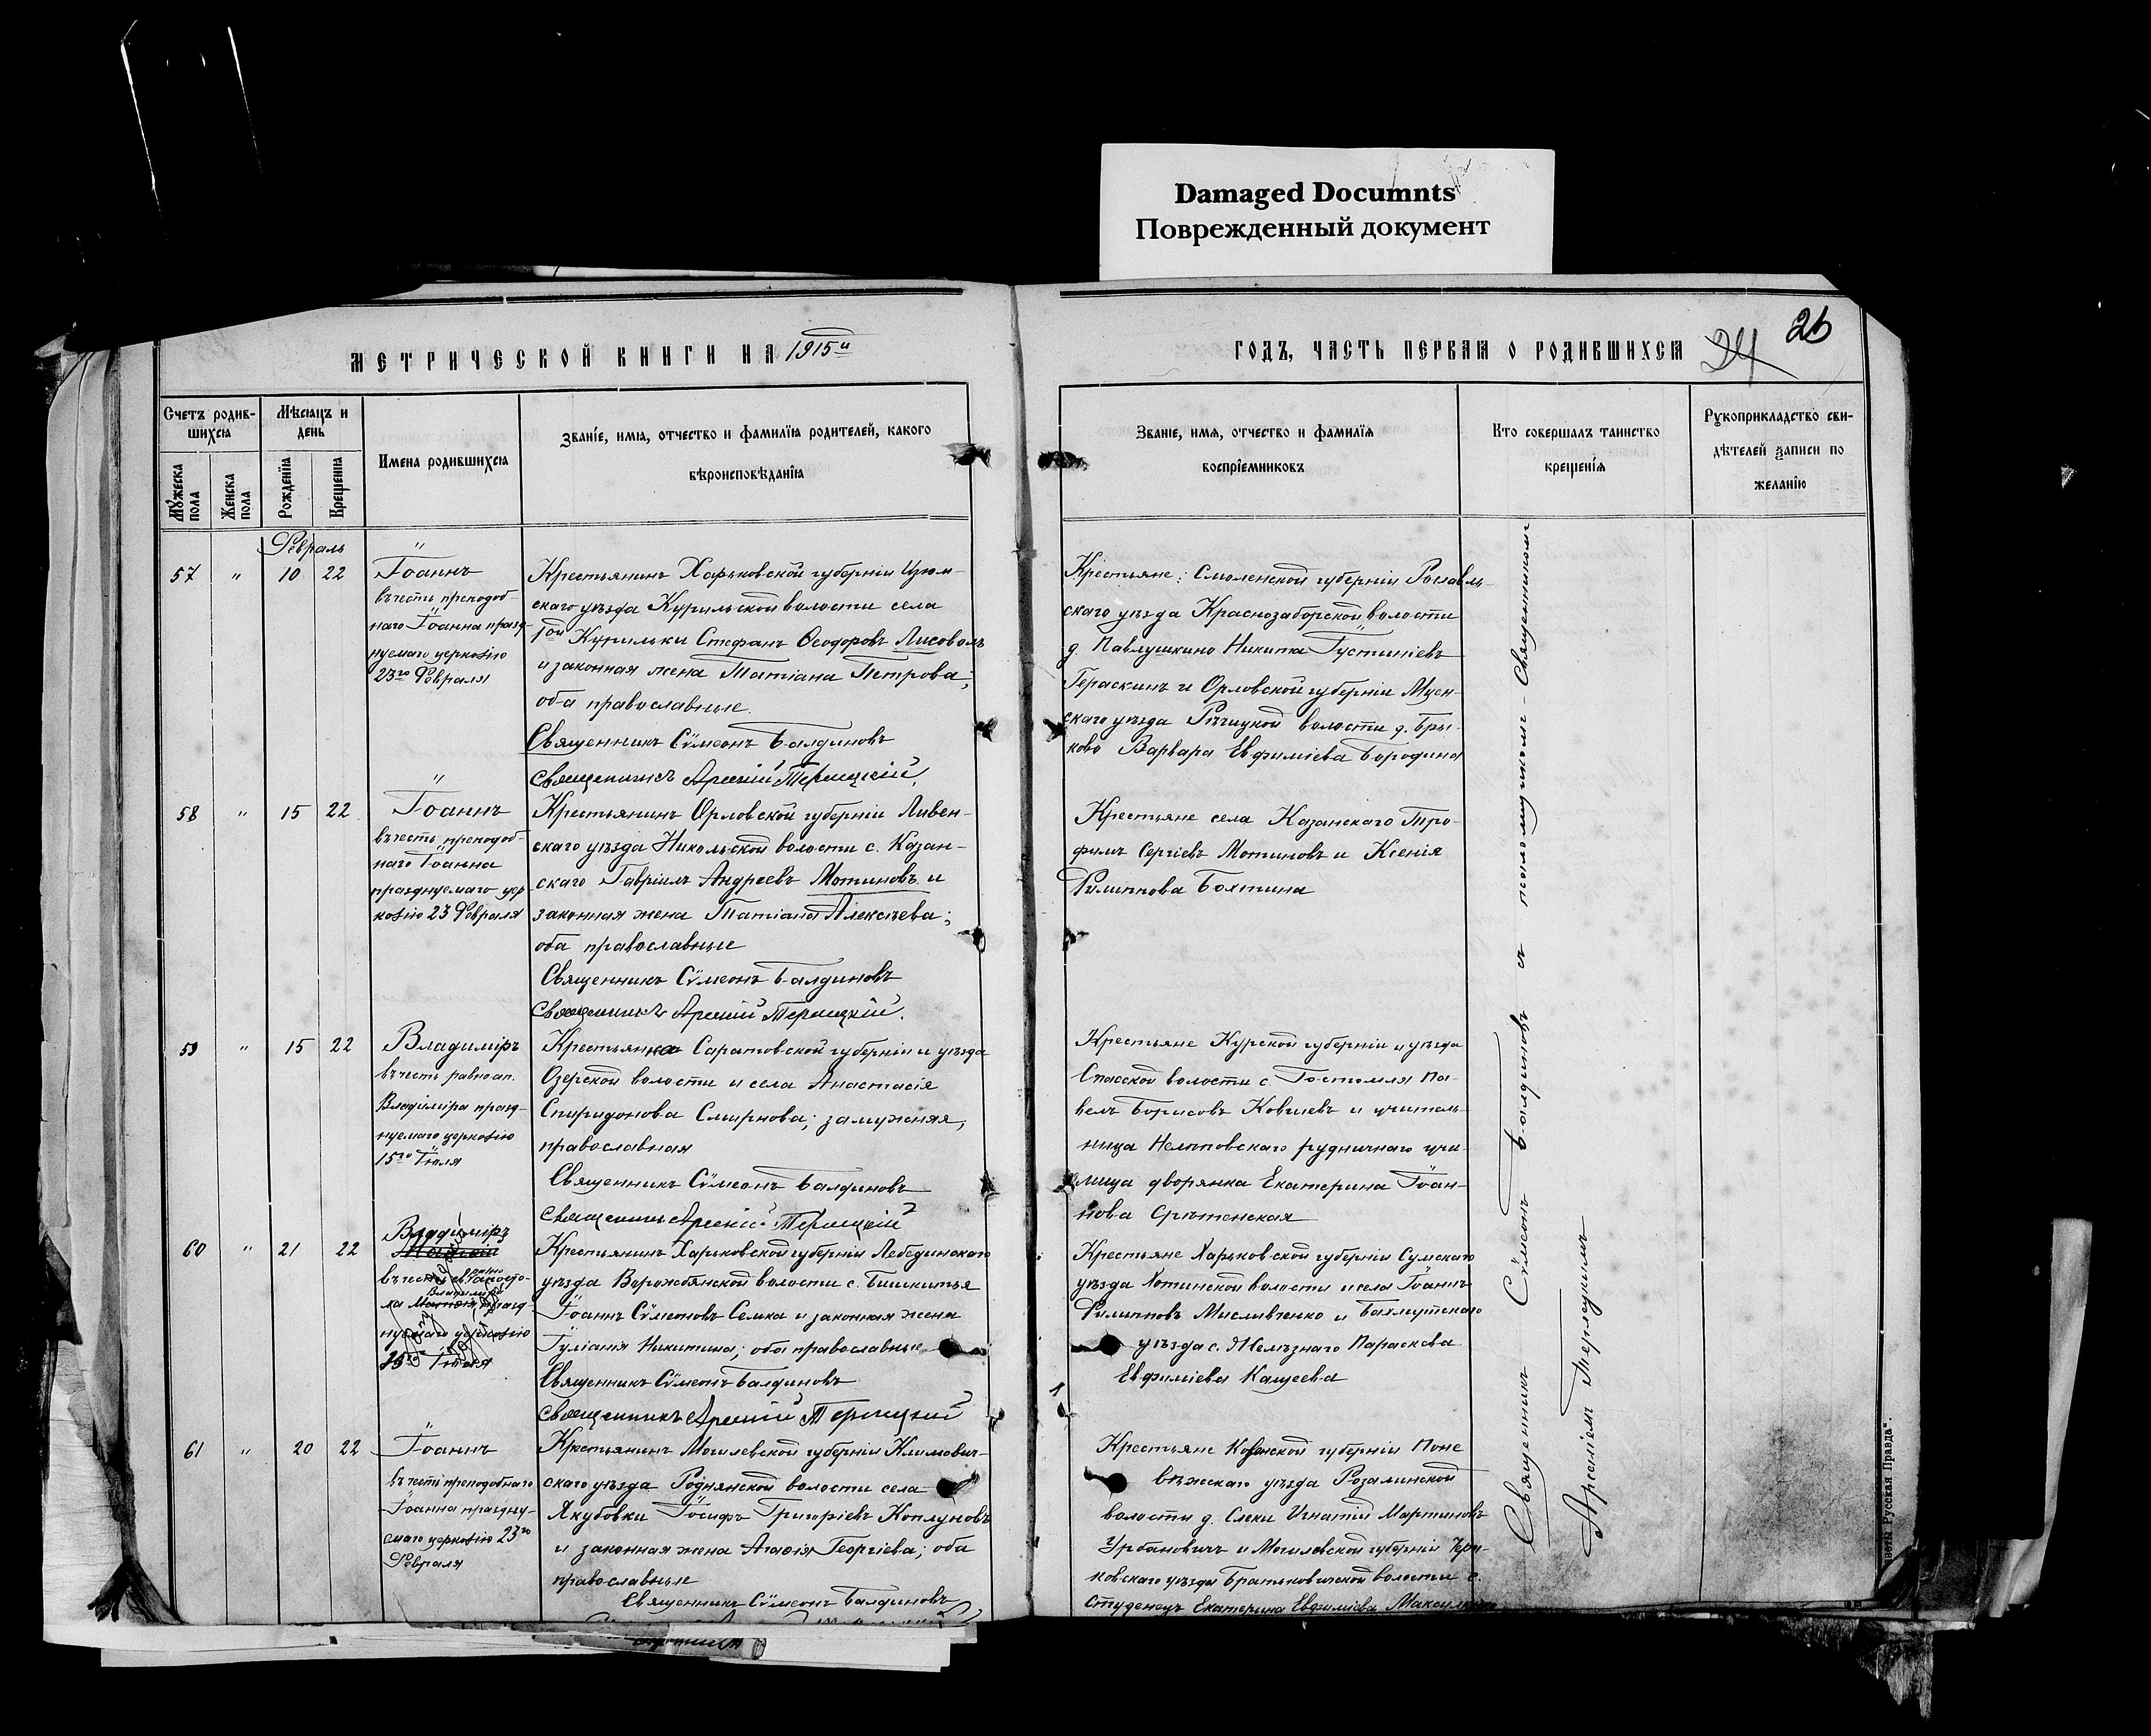 Damaged Documnts
Поврежденный документ
МЕТРИЧЕСКОЙ КНИГИ НА 1915й
ГОДЪ, ЧАСТЬ ПЕРВАЯ О РОДИВШИХСЯ
24
26
Счетъ родив-
шихся
Мѣсяцъ и
день
Мужеска
пола
Женска
пола
Рожденія
Крещенія
Имена родившихся
Званіе, имя, отчество и фамилія родителей, какого
вѣроисповѣданія
Званіе, имя, отчество и фамилія
воспріемниковъ
Кто совершалъ таинство
крещенія
Рукоприкладство сви-
дѣтелей записи по
желанію
Февраль
57 " 10 22
Іоаннъ
въ честь преподоб-
наго Іоанна празд-
нуемаго церковію
23го Февраля
Крестьянинъ Харьковской губерніи Изюм-
скаго уѣзда Курильской волости села
1ой Курильки Стефанъ Ѳеодоровъ Лисоволъ
и законная жена Татіана Петрова;
оба православные.
Священникъ Сѵмеонъ Балдиновъ
Священникъ Арсеній Терлецкій.
Крестьяне: Смоленской губерніи Рославль-
скаго уѣзда Краснозаборской волости
д. Павлушкино Никита Іустиніевъ
Гераскинъ и Орловской губерніи Мцен-
скаго уѣзда Рѣчицкой волости д. Бры-
ково Варвара Евфиміева Бородина
58 " 15 22
Іоаннъ
въ честь преподоб-
наго Іоанна
празднуемаго цер
ковію 23 Февраля
Крестьянинъ Орловской губерніи Ливен-
скаго уѣзда Никольской волости с. Казан-
скаго Гавріилъ Андреевъ Мотиновъ и
законная жена Татіана Алексѣева;
оба православные
Священникъ Сѵмеонъ Балдиновъ
Священникъ Арсеній Терлецкій.
Крестьяне села Казанскаго Тро-
фимъ Сергіевъ Мотиновъ и Ксенія
Филиппова Болтина
59 " 15 22
Владиміръ
въ честь равноап.
Владиміра празд-
нуемаго церковію
15го Іюля
Крестьянка Саратовской губерніи и уѣзда
Озерской волости и села Анастасія
Спиридонова Смирнова; замужняя,
православная
Священникъ Сѵмеонъ Балдиновъ
Священникъ Арсеній Терлецкій
Крестьяне Курской губерніи и уѣзда
Спасской волости с. Гостомля Па-
велъ Борисовъ Ковшевъ и учитель-
ница Нелѣповскаго рудничнаго учи-
лища дворянка Екатерина Іоан-
нова Срѣтенская
60 " 21 22
Владиміръ
въ честь
Владиміра
нуемаго церковію
15го Іюля
Крестьянинъ Харьковской губерніи Лебединскаго
уѣзда Ворожбянской волости с. Бишкитья
Іоаннъ Сѵмеоновъ Семка и законная жена
Іуліанія Никитина; оба православные
Священникъ Сѵмеонъ Балдиновъ
Священникъ Арсеній Терлецкій
Крестьяне Харьковской губерніи Сумскаго
уѣзда Хотинской волости и села Іоаннъ
Филипповъ Мисливченко и Бахмутскаго
уѣзда с. Желѣзнаго Параскева
Евфиміева Кащеева
61 " 20 22
Іоаннъ
въ честь преподобнаго
Іоанна праздну-
емаго церковію 23го
Февраля
Крестьянинъ Могилевской губерніи Климович-
скаго уѣзда Роднянской волости села
Якубовки Іосифъ Григоріевъ Коплуновъ
и законная жена Агаѳія Георгіева; оба
православные
Священникъ Сѵмеонъ Балдиновъ
Крестьяне Ковенской губерніи Поне
вѣжскаго уѣзда Розалинской
волости д. Слеки Игнатій Мартиновъ
Урбановичъ и Могилевской губерніи Чери-
ковскаго уѣзда Братьковичской волости с.
Студенецъ Екатерина Евфиміева
Священникъ Сѵмеонъ Балдиновъ съ псаломщикомъ - Священникомъ
Арсеніемъ Терлецкимъ
Русская Правда".